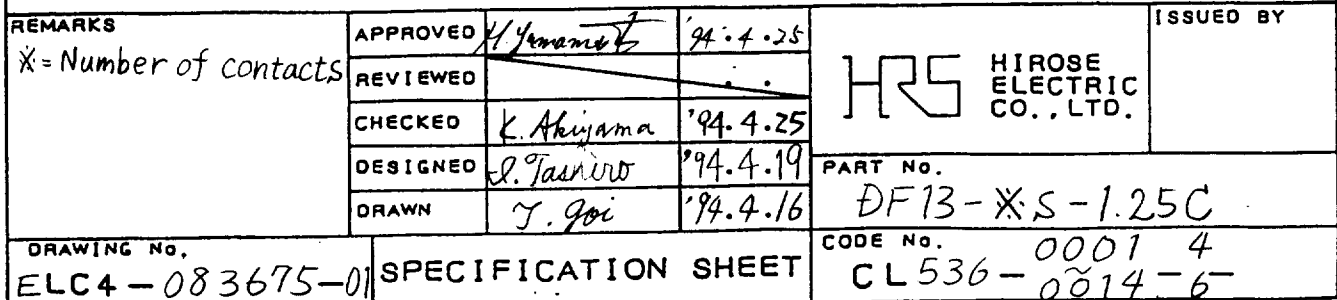 REMARKS
※=Number of contacts
APPROVED H. Yamamoto '94.4.25
REVIEWED . .
CHECKED K. Akiyama '94.4.25
DESIGNED I. Tashiro '94.4.19
DRAWN T. Goi '94.4.16
HRS HIROSE
ELECTRIC
CO., LTD.
ISSUED BY
PART No.
DF13-※S-1.25C
DRAWING No.
ELC4-083675-01
SPECIFICATION SHEET
CODE No.
CL536-0001-4
~
0014-6-